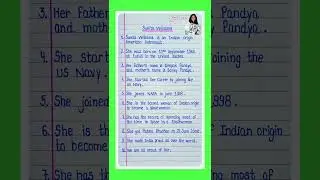 Sunita Williams
1. Sunita Williams is an Indian origin
American Astronaut.
2. She was born on 19th September 1965
at Euclid in the United States.
3. Her Father's name is Deepak Pandya
and mother's name is Bonny Pandya.
4. She Started her Career by joining the
US Navy.
5. She joined NASA in June 1998.
6. She is the Second woman of Indian origin
to become a
7. She has the record of spending most of
the time in Space by a
8. She got Padma Bhushan
9. She made India proud all over the world.
10. We are all proud of her.
3. Her Father
and mother
4. She Started
US Navy.
5. She joined
6. She is the
to become
7. She has
Pandya
Pandya.
joining the
1998.
of Indian origin